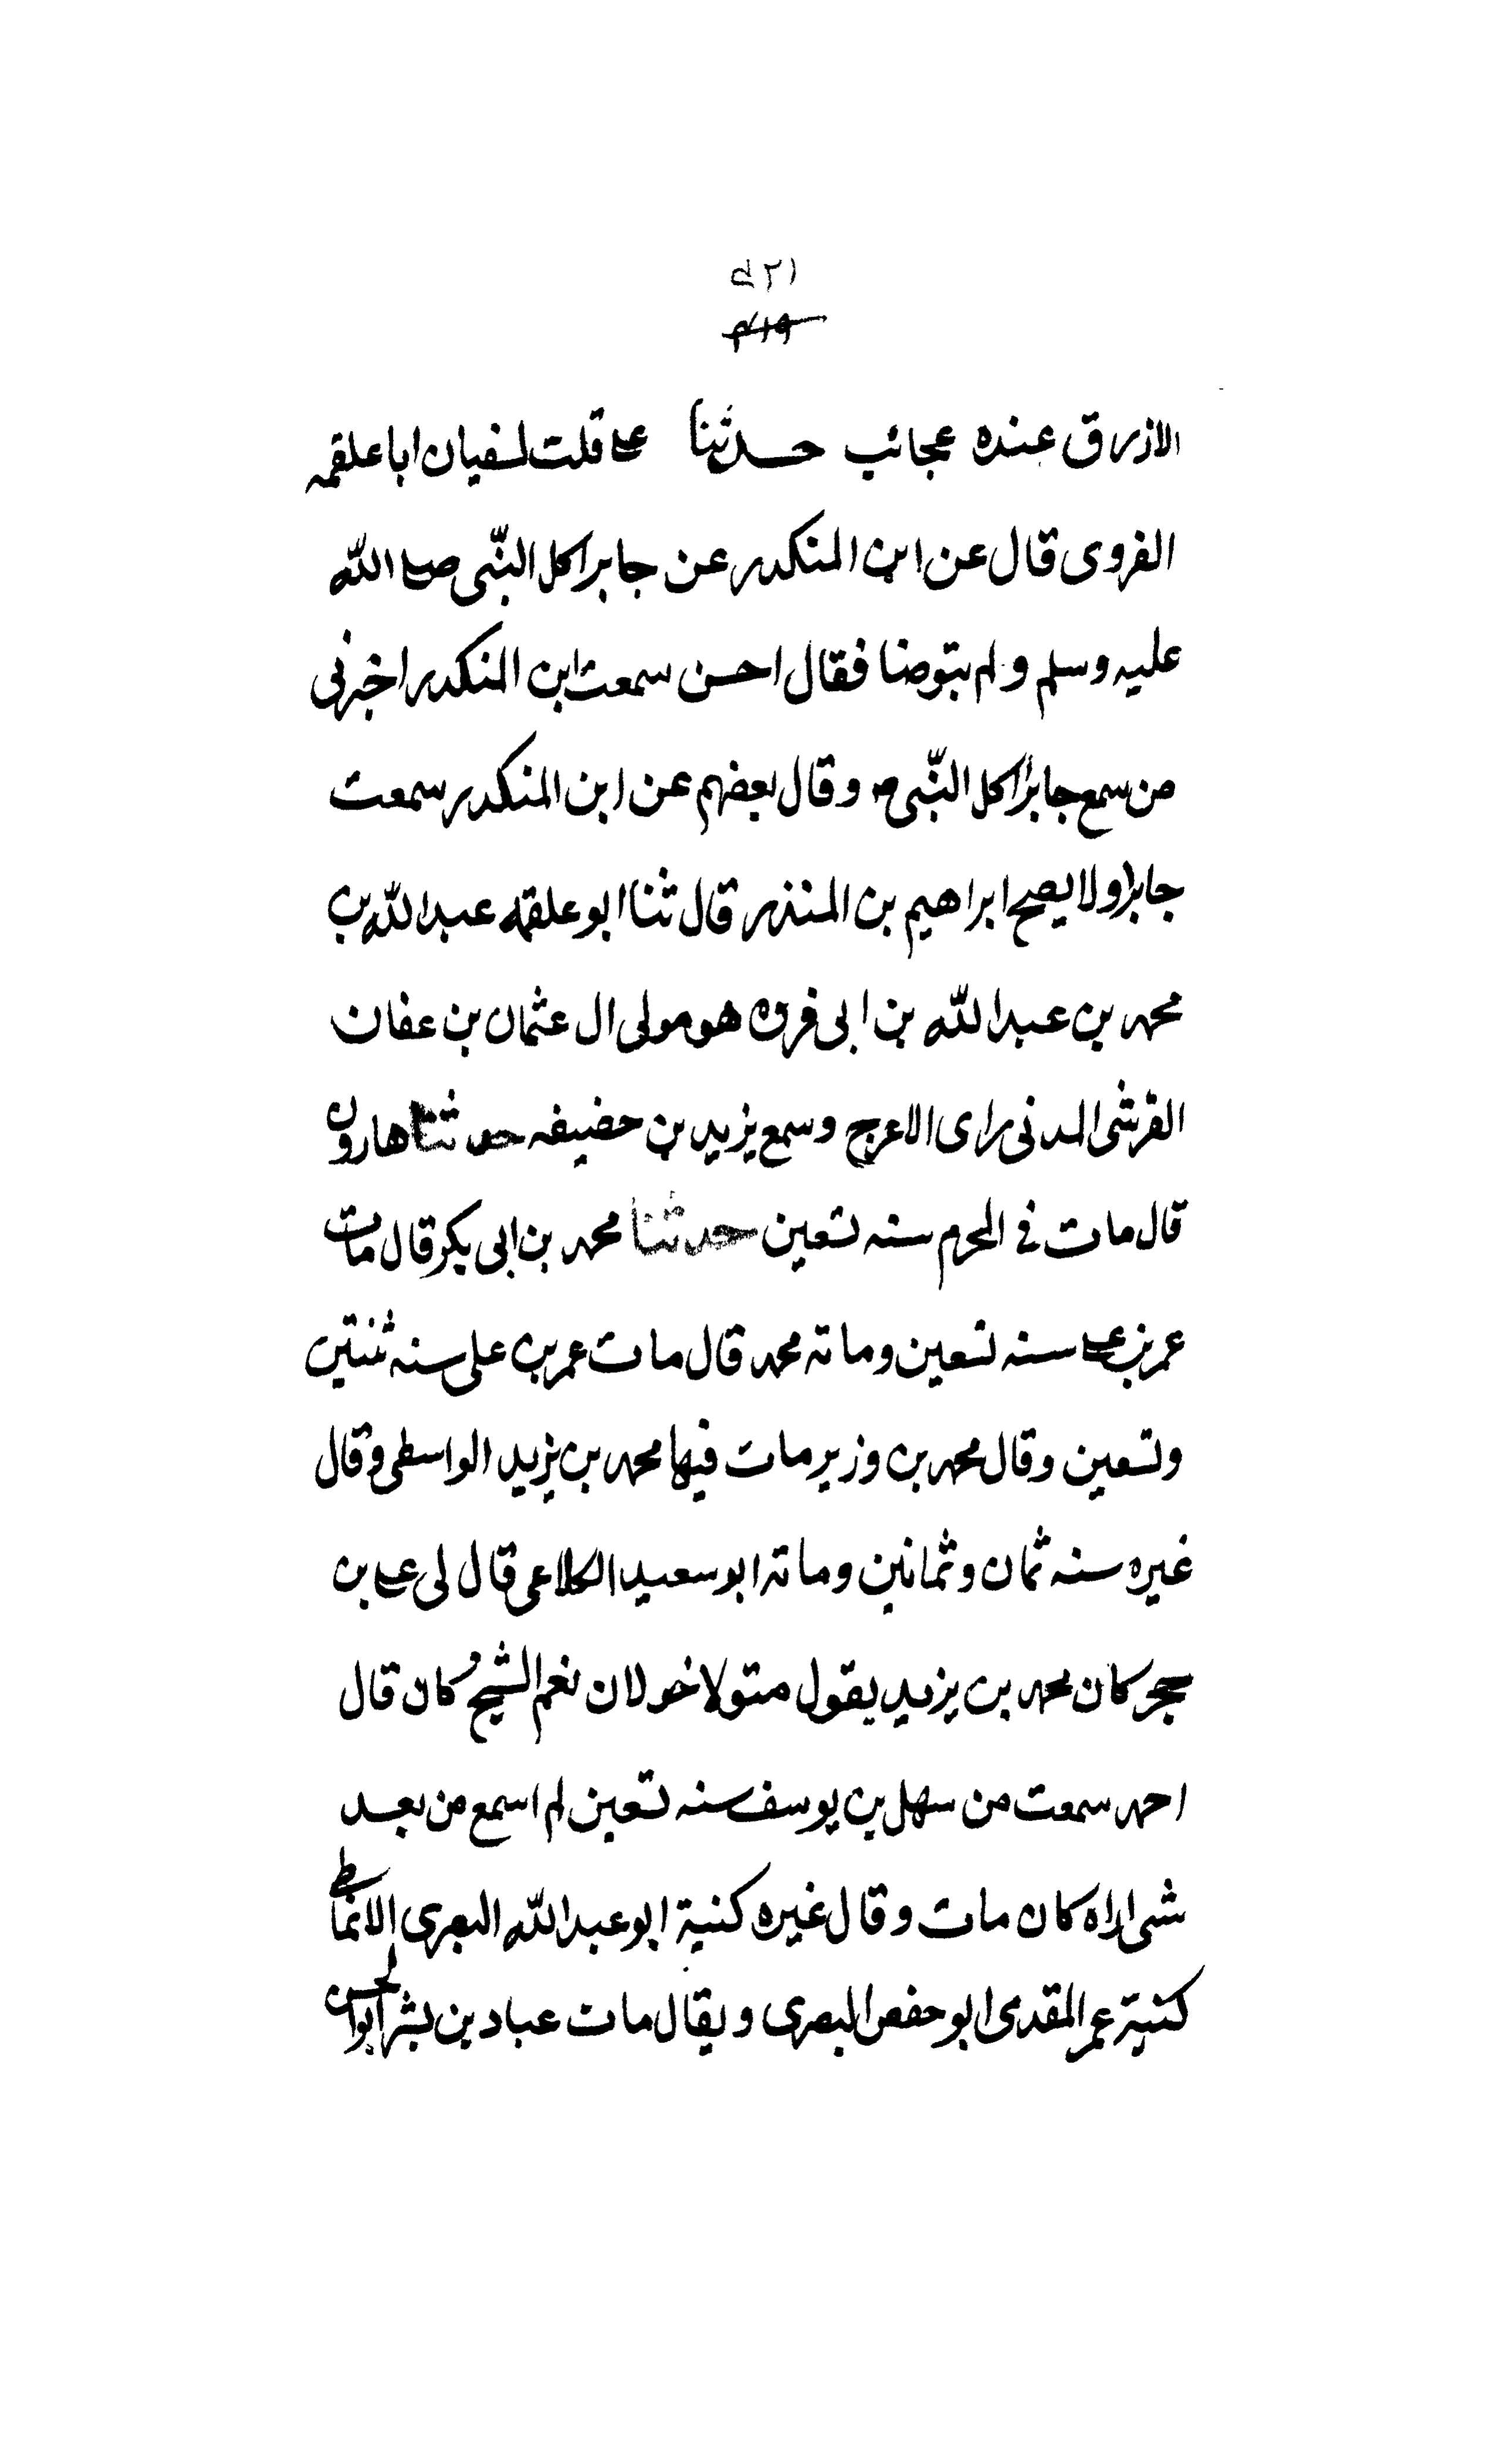 ٤٢١
٤١٩
الازرق عنده عجائب حدثنا على قلت لسفيان ابا علقمه
الفروى قال عن ابن المنكدر عن جابر اكل النبى صلى الله
عليه وسلم ولم يتوضا فقال احسن سمعت ابن المنكدر اخبرنى
من سمع جابرا اكل النبى صـ وقال بعضهم عن ابن المنكدر سمعت
جابرا ولا يصح ابراهيم بن المنذر قال ثنا ابو علقمه عبد الله بن
محمد بن عبد الله بن ابى فروه هو مولى ال عثمان بن عفان
القرشى المدنى راى الاعرج وسمع يزيد بن حضيفه حدثنا هارون
قال مات فى المحرم سنه تسعين حدثنا محمد بن ابى بكر قال مات
عمر بن على سنه تسعين ومائه محمد قال مات عمر بن على سنه ثنتين
وتسعين وقال محمد بن وزير مات فيها محمد بن يزيد الواسطى وقال
غيره سنه ثمان وثمانين ومائه ابو سعيد الكلاعى قال لى على بن
حجر كان محمد بن يزيد يقول متولا خولان نعم الشيخ كان قال
احمد سمعت من سهل بن يوسف سنه تسعين لم اسمع من بعد
شى اراه كان مات وقال غيره كنية ابو عبد الله البصرى الانماطى
كنية عمر المقدمى ابو حفص البصرى ويقال مات عباد بن بشر ابو الحسن